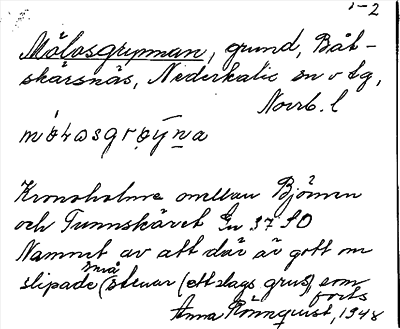 1-2
Målasgrynnan, grund, Båt-
skärsnäs, Nederkalix sn o lg,
Norrb. l
Kronoholme mellan Björnen
och Tunnskäret Gu 37 SO
Namnet av att där är gott om
små
slipade stenar (ett slags grus), som
forts
Anna Rönnquist, 1948